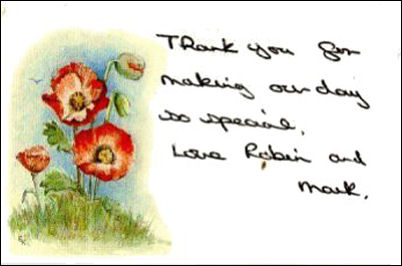 Thank you for
making our day
so special.
Love Robin and
Mark.